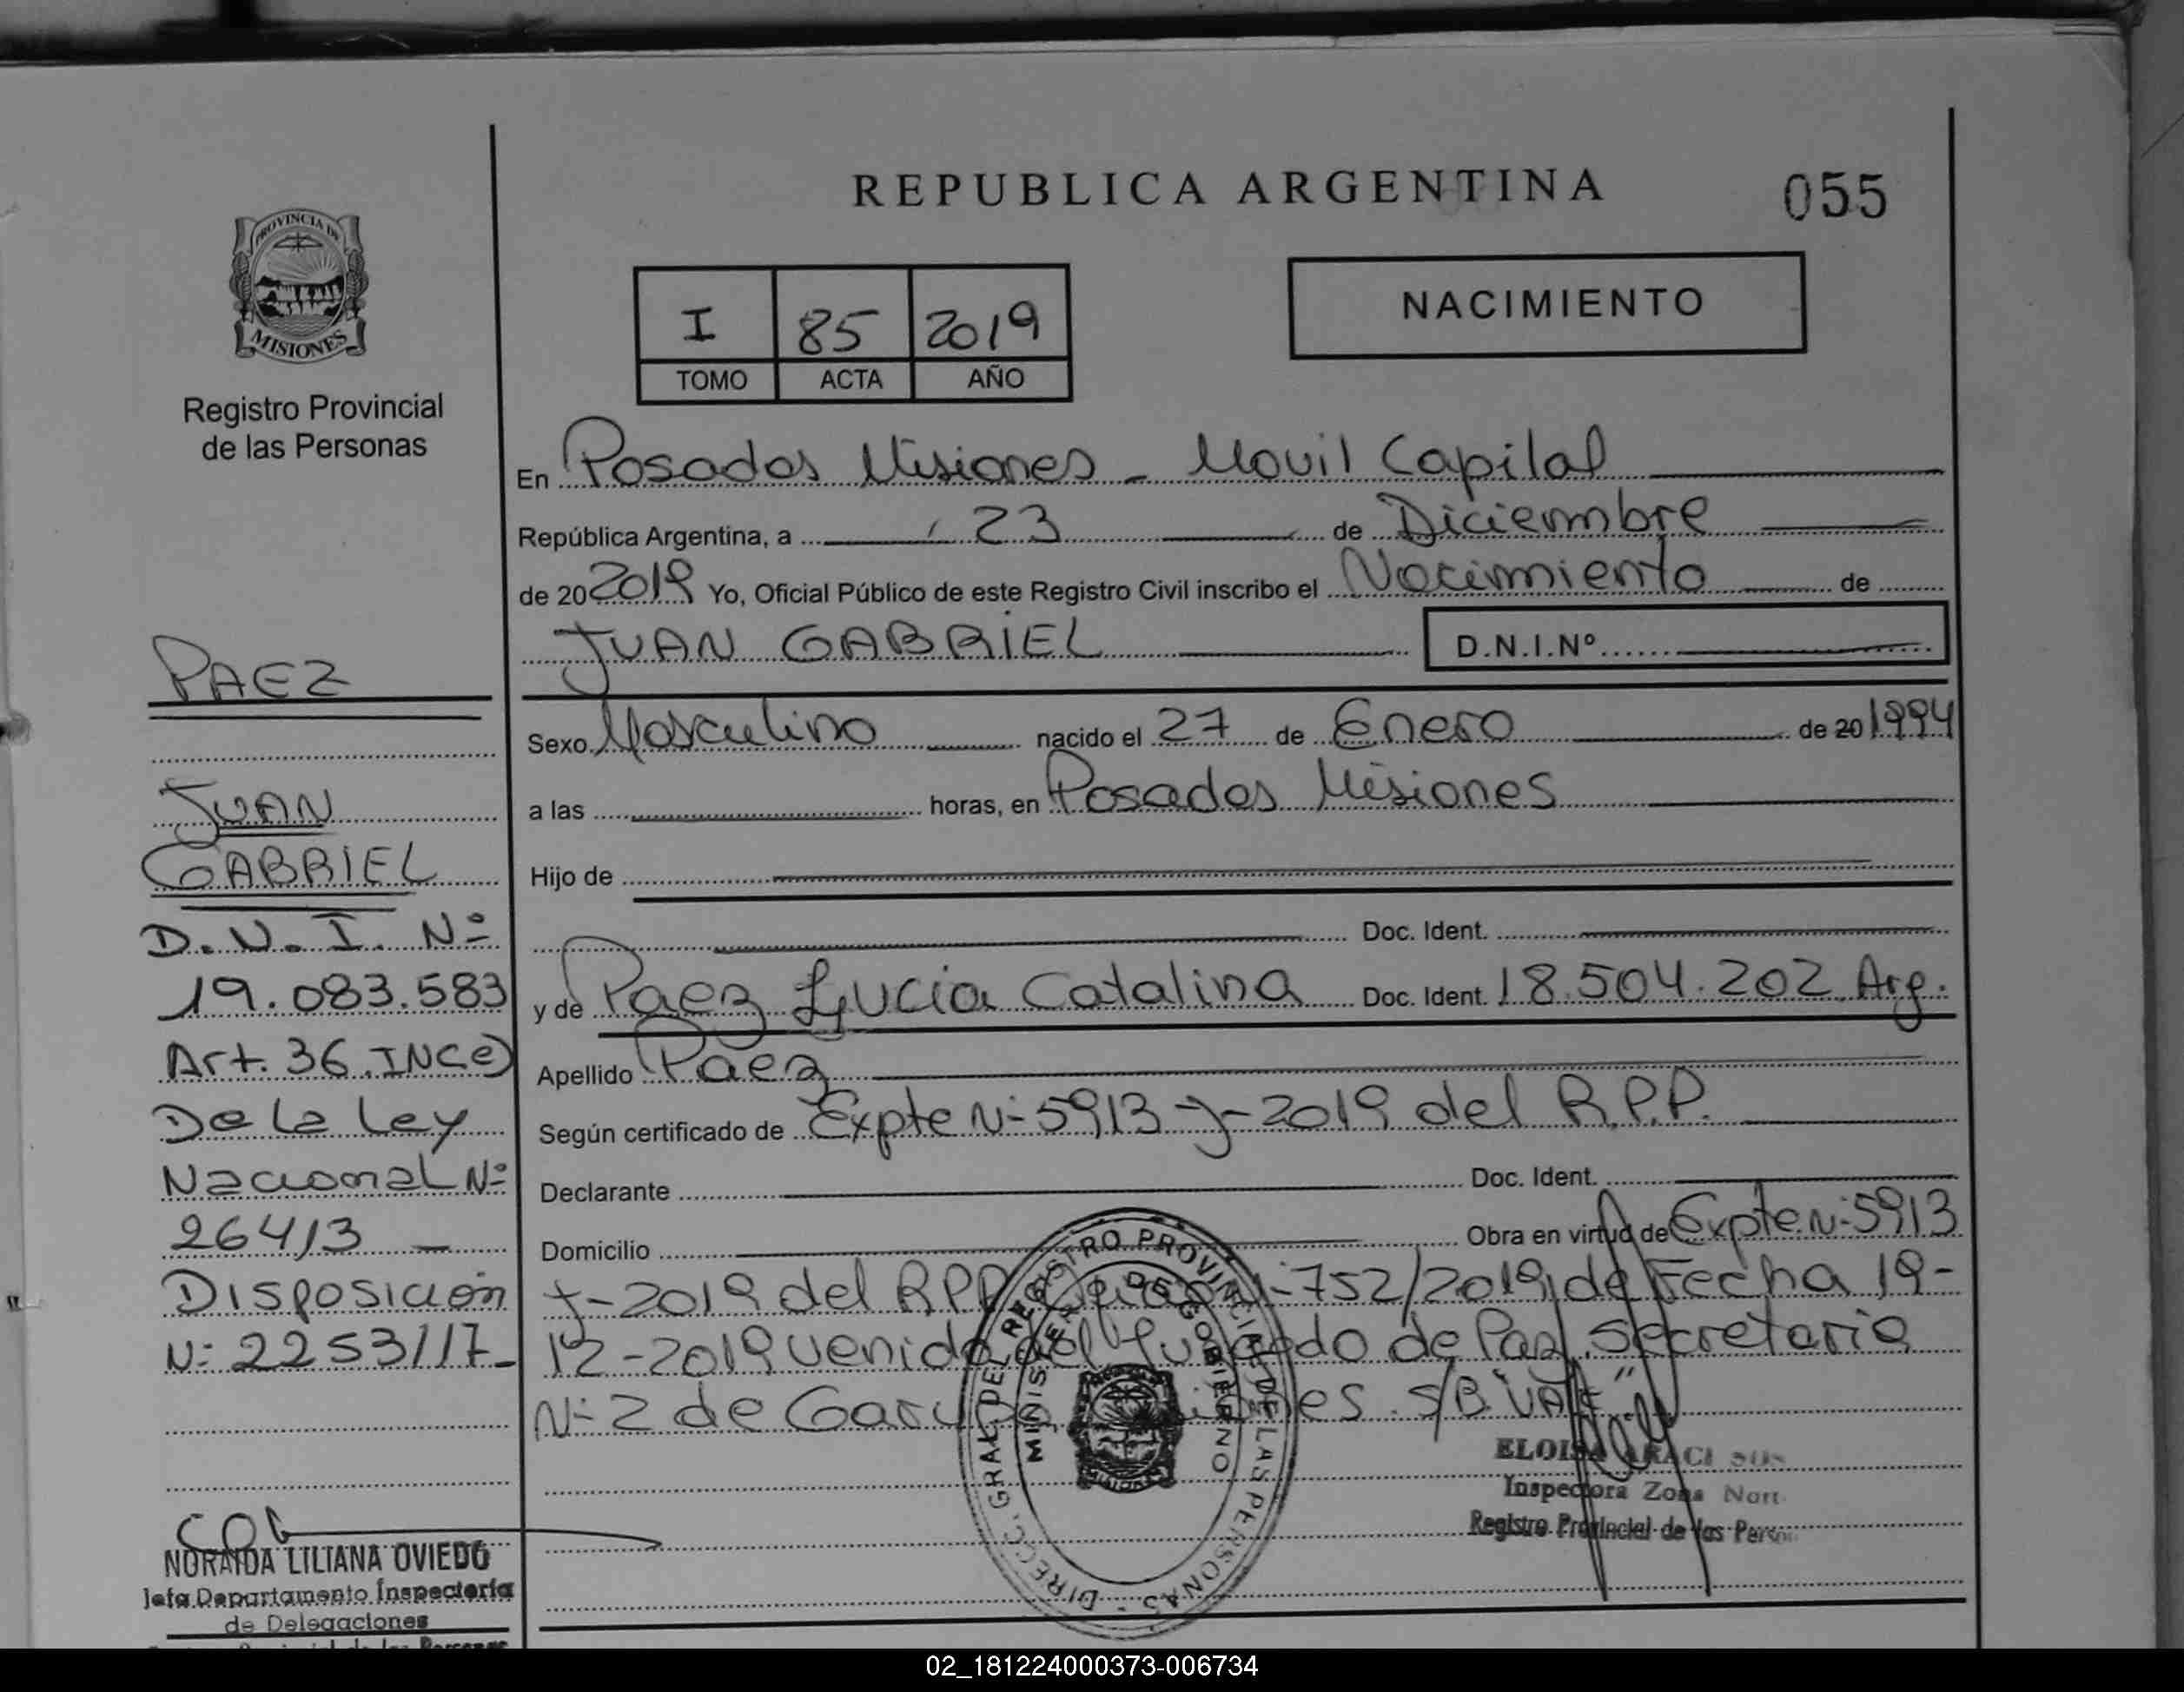 REPUBLICA ARGENTINA
055
PROVINCIA DE
MISIONES
Registro Provincial
de las Personas
I 85 2019
TOMO ACTA AÑO
NACIMIENTO
En Posadas Misiones - Movil Capital
República Argentina, a 23 de Diciembre
de 20 2019 Yo, Oficial Público de este Registro Civil inscribo el Nacimiento de
JUAN GABRIEL D.N.I.Nº
Sexo Masculino nacido el 27 de Enero de 20 1994
a las horas, en Posadas Misiones
Hijo de
Doc. Ident.
y de Paez Lucia Catalina Doc. Ident. 18.504.202 Arg.
Apellido Paez
Según certificado de Expte Nº 5913-J-2019 del R.P.P.
Declarante Doc. Ident.
Domicilio Obra en virtud de Expte Nº 5913
J-2019 del RPP 752/2019 de Fecha 19-
12-2019 venido del Juzgado de Paz Secretaria
Nº 2 de S/B. VALE"
PAEZ
JUAN
GABRIEL
D.N.I. Nº
19.083.583
Art. 36 INC e)
De la Ley
Nacional Nº
26413 -
Disposición
Nº 2253/17-
NORAIDA LILIANA OVIEDO
Jefa Departamento Inspectoría
de Delegaciones
DIRECC. GRAL. DEL REGISTRO PROVINCIAL DE LAS PERSONAS -
MINISTERIO DE GOBIERNO
ELOISA ARACI
Inspectora Zona
Registro Provincial de las
02_181224000373-006734